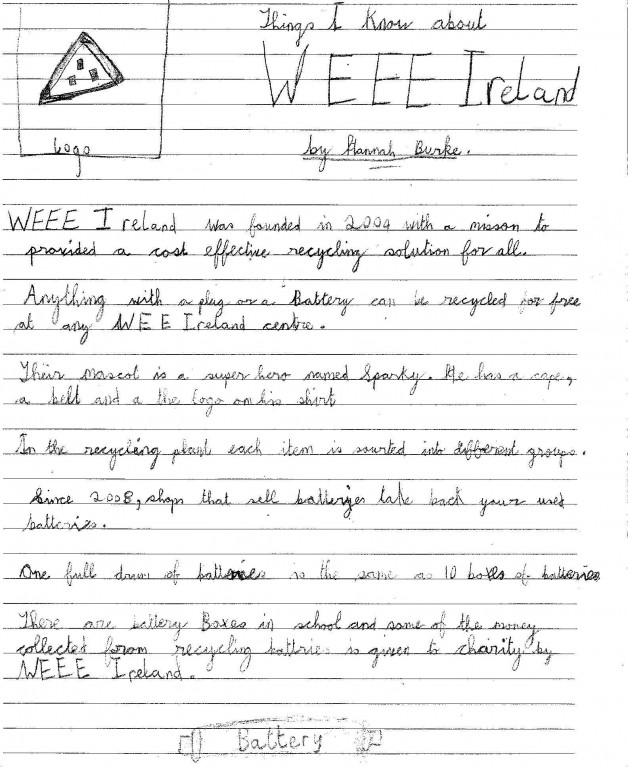 Things I Know about
WEEE Ireland
Logo
by Hannah Burke.
WEEE Ireland was founded in 2004 with a misson to
provided a cost effective recycling solution for all.
Anything with a plug or a Battery can be recycled for free
at any WEE Ireland centre.
Their mascot is a super hero named Sparky. He has a cape,
a belt and a the logo on his shirt
In the recycling plant each item is sourted into different groups.
Since 2008, shops that sell batteryies take back your used
batteries.
One full drum of batteries is the same as 10 boxes of batteries
There are battery Boxes in school and some of the money
collected forom recycling battries is given to charity by
WEEE Ireland.
Battery